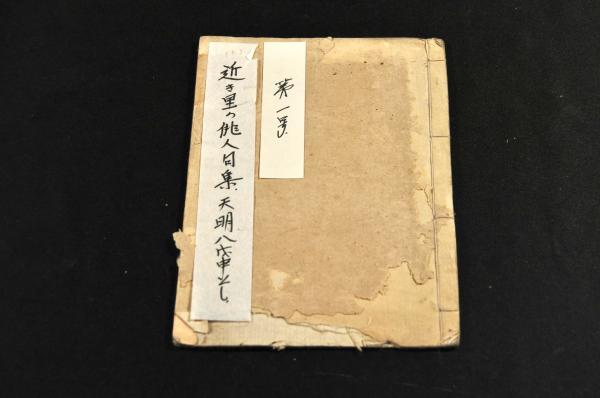 第一号
近き里の俳人句集 天明八戊申とし